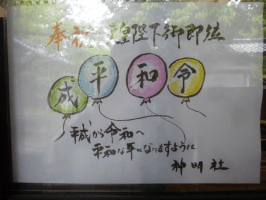 奉祝 皇陛下御即位
成平和令
平成から令和へ
平和な年になりますように
神明社